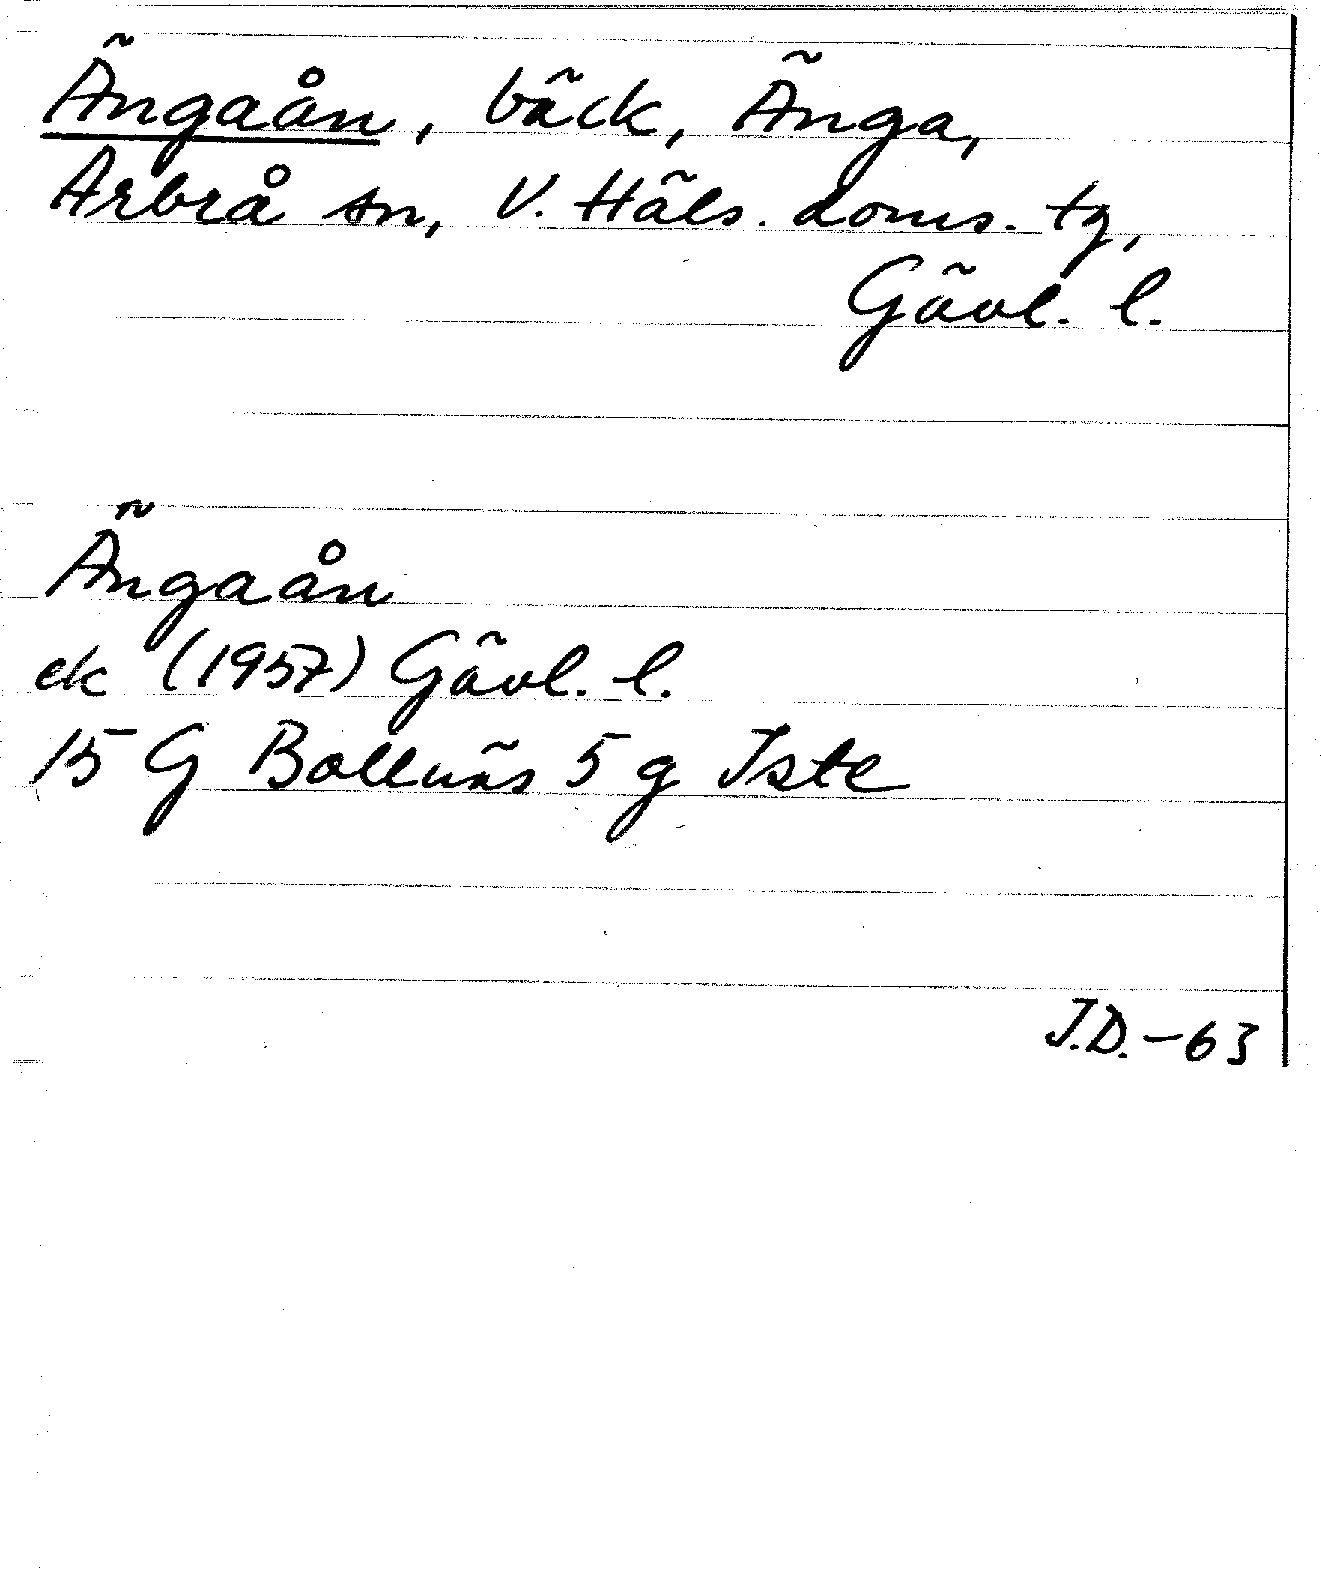 Ängaån, bäck, Änga,
Arbrå sn, V. Häls. doms. tg,
Gävl. l.
Ängaån
ek (1957) Gävl. l.
15 G Bollnäs 5 g Iste
J.D. - 63